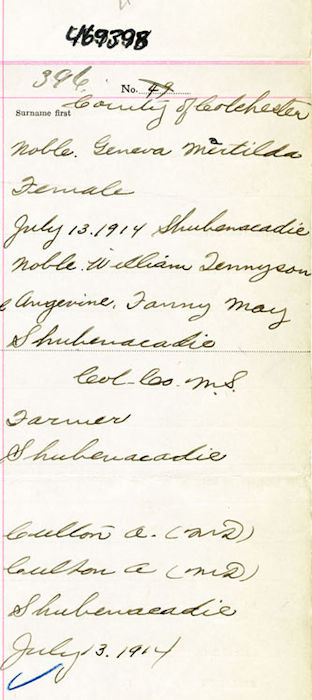 469398
396 No. 49
County of Colchester
Surname first
Noble. Geneva Mertilda
Female
July 13. 1914 Shubenacadie
Noble. William Tennyson
Angevine. Fanny May
Shubenacadie
Col- Co. N.S.
Farmer
Shubenacadie
Culton A. (MD)
Culton A (MD)
Shubenacadie
July 13. 1914